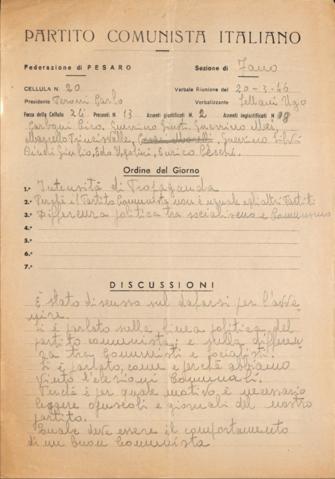 PARTITO COMUNISTA ITALIANO
Federazione di PESARO Sezione di Fano
CELLULA N. 20 Verbale Riunione del 20-3-46
Presidente Peroni Carlo Verbalizzante Pellani Ugo
Forza della Cellula 24 Presenti N. 13 Assenti giustificati N. 2 Assenti ingiustificati N.
Carboni Guerrino Giusti, Guerrino
Marcello Guerrino
Giulio, Edo Ugolini, Enrico
Ordine del Giorno
1.° Intensità di Propaganda
2.° Perchè il Partito Comunista non è uguale agli altri Partiti
3.° Differenza politica tra socialismo e Comunismo
4.°
5.°
6.°
7.°
DISCUSSIONI
È stato discusso sul da farsi per l'avve
nire.
Si è parlato sulla linea politica del
partito comunista; e sulla differen
za tra Comunisti e socialisti.
Si è parlato, come e perchè abbiamo
vinto l'elezioni Comunali.
Perchè è per quale motivo è necessario
leggere opuscoli e giornali del nostro
partito.
Quale deve essere il comportamento
di un buon Comunista